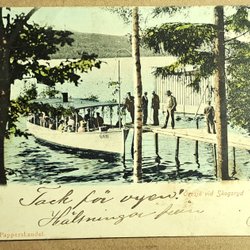 vid Skogsryd
Tack för vyen!
Hälsningar från
Pappershandel.